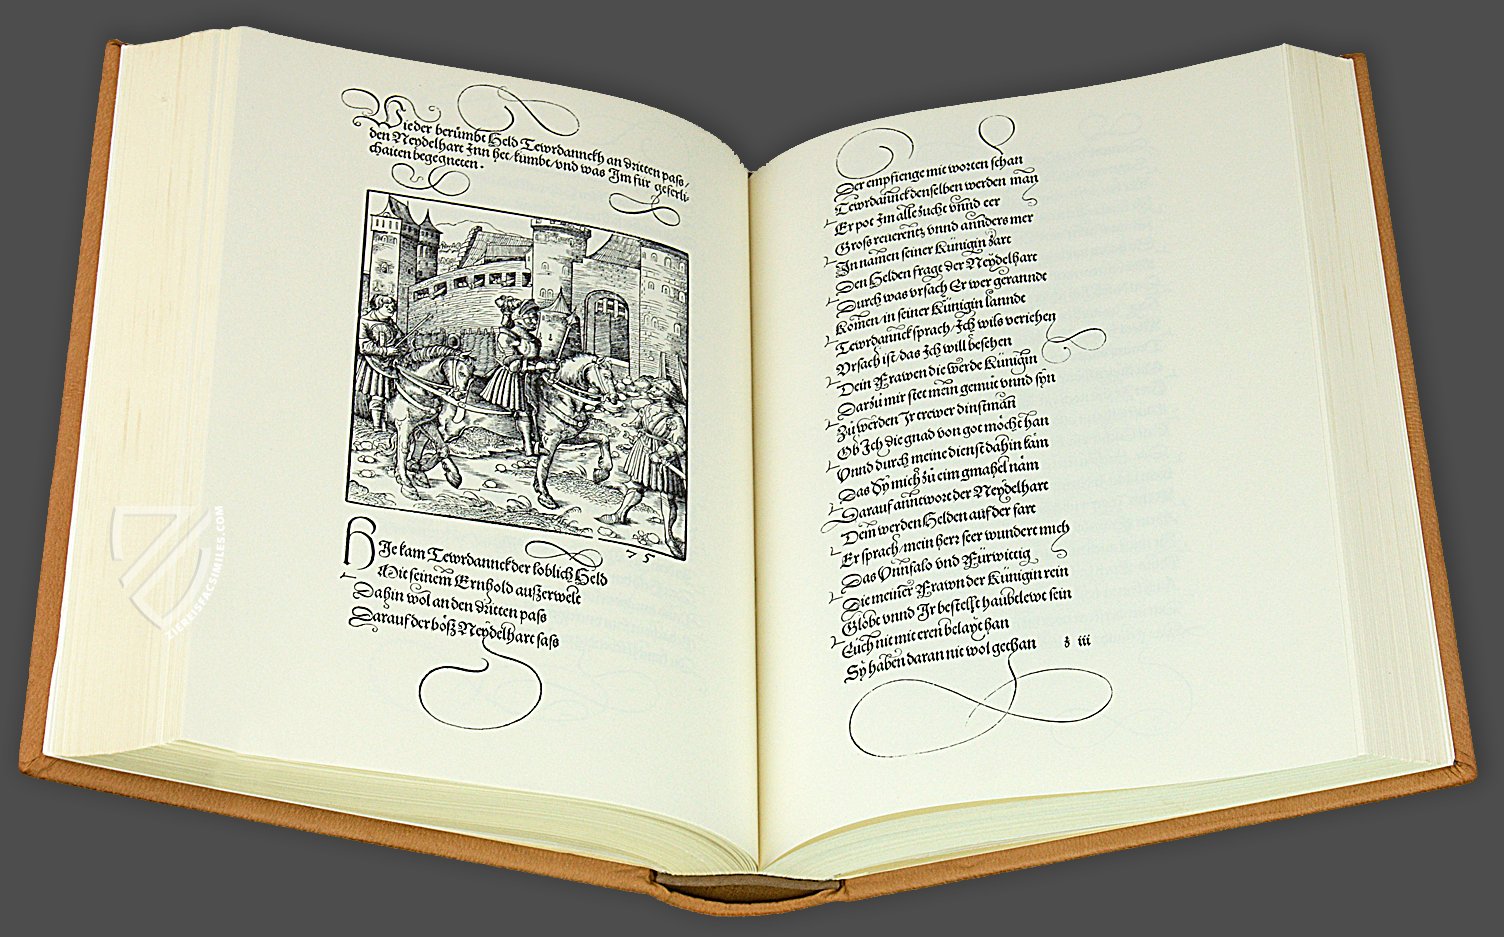 Wie der berümbt Held Tewrdannckh an dritten pass/
den Neydelhart Inn het kumbt/vnd was Im für geferli-
chaiten begegneten.
75
HIe kam Tewrdannck der loblich Held
Mit seinem Ernhold außerwelt
Dahin wol an den dritten pass
Darauf der böß Neydelhart sass
Der empfienge mit worten schan
Tewrdannck denselben werden man
Er pot Im alle zucht vnnd eer
Gross reuerentz vnnd annders mer
In namen seiner Künigin zart
Den Helden fragt der Neydelhart
Durch was vrsach Er wer gerannde
Komen/in seiner Künigin lannde
Tewrdannck sprach/Ich wils veriehen
Vrsach ist/das Ich will besehen
Dein Frawen die werde Künigin
Darzů mir stet mein gemüt vnnd syn
Zů werden Ir trewer dinstman
Ob Ich die gnad von got möcht han
Vnnd durch meine dienst dahin kam
Das Sy mich zů eim gmahel nam
Darauf anntwort der Neydelhart
Dem werden Helden auf der fart
Er sprach/mein herz seer wundert mich
Das Vnnfalo vnd Fürwittig
Die meiner Frawn der Künigin rein
Glöbt vnnd Ir bestellt haubtlewt sein
Euch nit mit eren belayt han
Sy haben daran nit wol gethan
z iii
ZIEREISFACSIMILES.COM